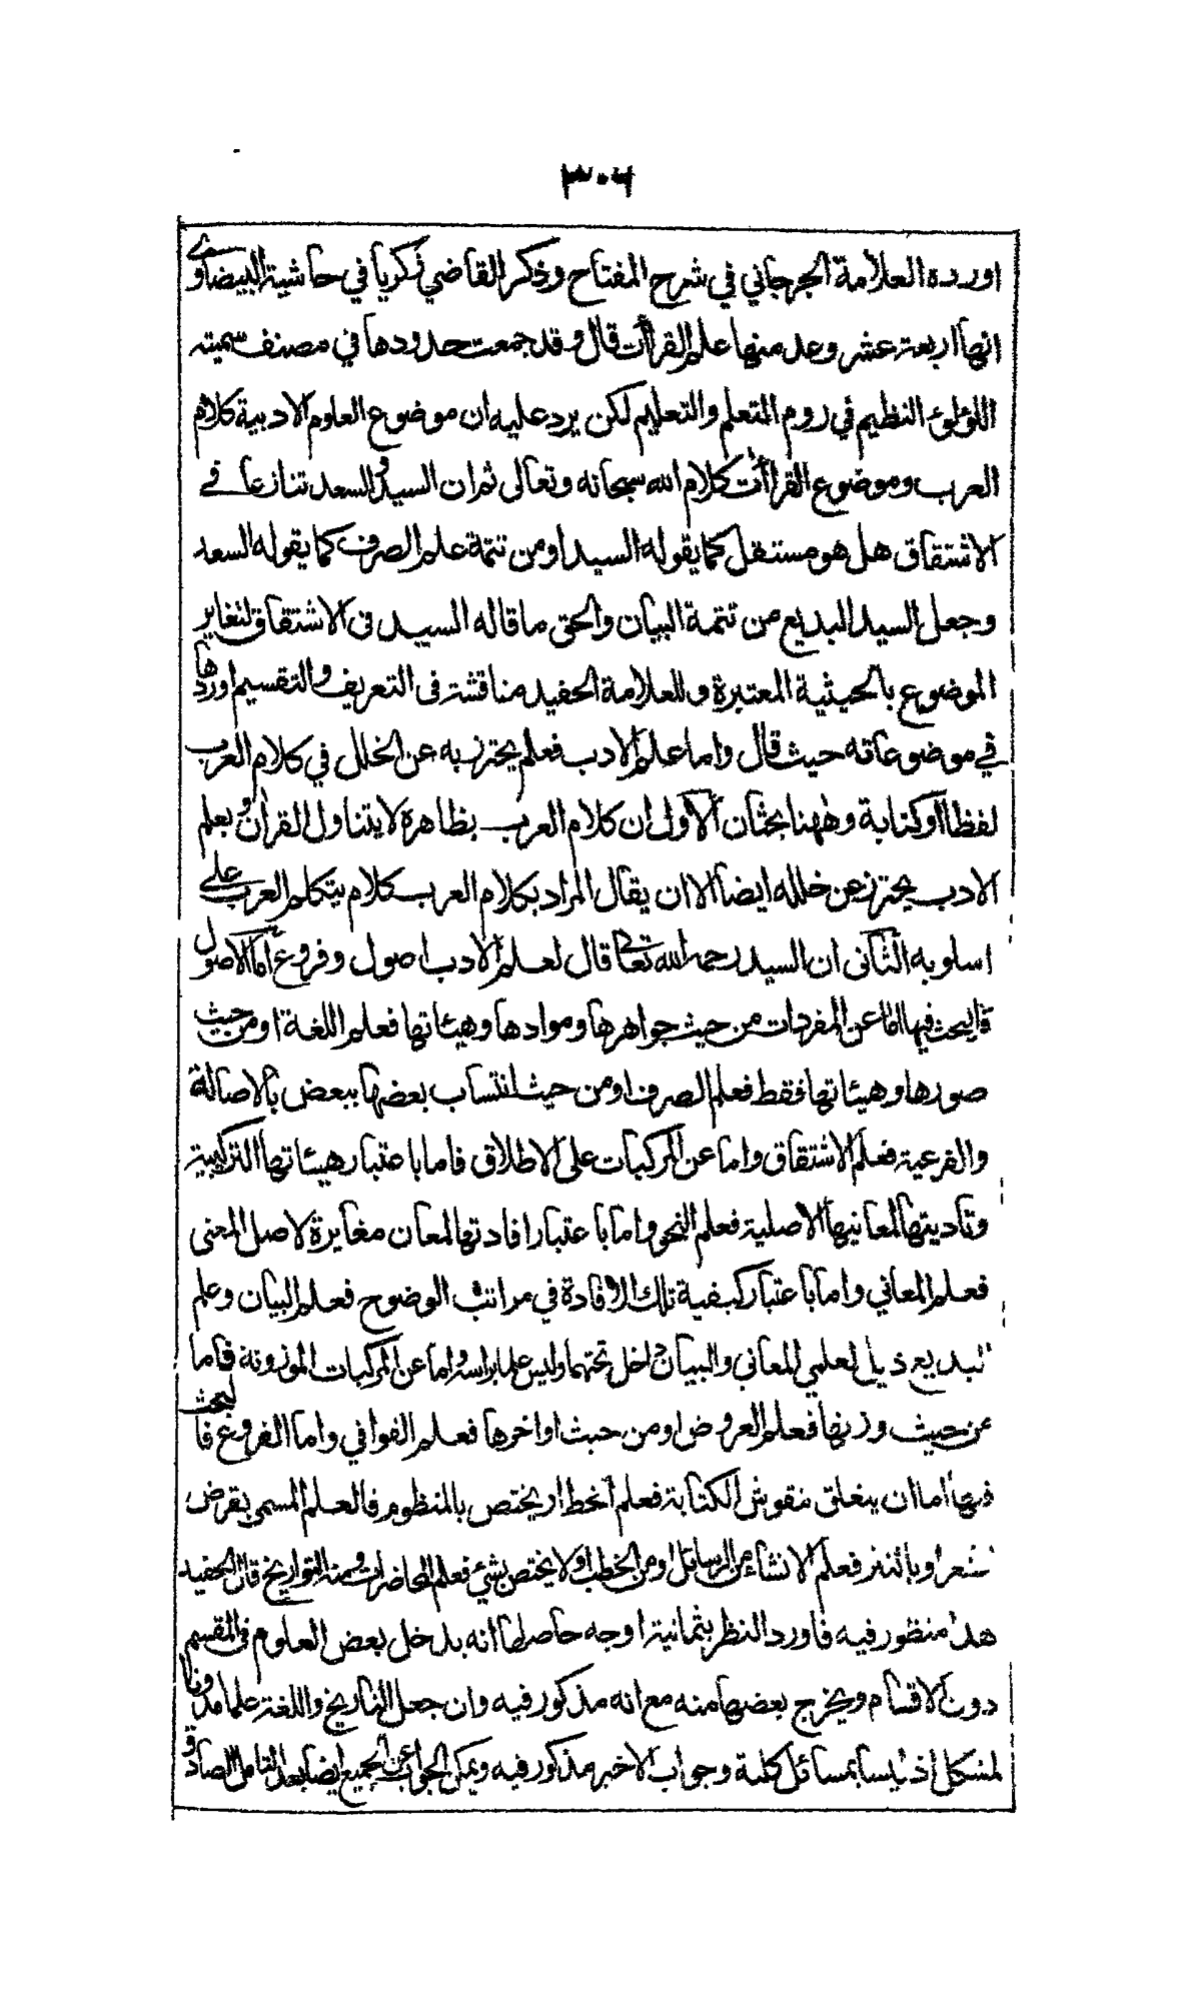 ٣٠٦
اورده العلامة الجرجاني في شرح المفتاح وذكر القاضي زكريا في حاشية البيضاوى
انها اربعة عشر وعد منها علم القرأات قال وقد جمعت حدودها في مصنف سميته
اللؤلؤ النظيم في روم التعلم والتعليم لكن يرد عليه ان موضوع العلوم الادبية كلام
العرب وموضوع القراأت كلام الله سبحانه وتعالى ثم ان السيد والسعد تنازعا في
الاشتقاق هل هو مستقل كما يقوله السيد او من تتمة علم الصرف كما يقوله السعد
وجعل السيد البديع من تتمة البيان والحق ما قاله السيد فى الاشتقاق لتغاير
الموضوع بالحيثية المعتبرة وللعلامة الحفيد مناقشة فى التعريف والتقسيم اوردها
في موضوعاته حيث قال واما علم الادب فعلم يحترز به عن الخلل في كلام العرب
لفظا او كتابة وههنا بحثان الاول ان كلام العرب بظاهره لا يتناول القرآن وبعلم
الادب يحترز عن خلله ايضا الا ان يقال المراد بكلام العرب كلام يتكلم العرب على
اسلوبه الثانى ان السيد رحمه الله تعالى قال لعلم الادب اصول وفروع اما الاصول
فالبحث فيها اما عن المفردات من حيث جواهرها وموادها وهيئاتها فعلم اللغة او من حيث
صورها وهيئاتها فقط فعلم الصرف او من حيث انتساب بعضها ببعض بالاصالة
والفرعية فعلم الاشتقاق واما عن المركبات على الاطلاق فاما باعتبار هيئاتها التركيبية
وتاديتها لمعانيها الاصلية فعلم النحو واما باعتبار افادتها لمعان مغايرة لاصل المعنى
فعلم المعاني واما باعتبار كيفية تلك الافادة في مراتب الوضوح فعلم البيان وعلم
البديع ذيل لعلمي المعاني والبيان داخل تحتهما وليس علما براسه واما عن المركبات الموزونة فاما
من حيث وزنها فعلم العروض او من حيث اواخرها فعلم القوافي واما الفروع فالبحث
فيها اما ان يتعلق بنقوش الكتابة فعلم الخط او يختص بالمنظوم فالعلم المسمى بقرض
الشعر او بالنثر فعلم الانشاء من الرسائل او من الخطب او لا يختص بشئ فعلم المحاضرات ومنه التواريخ قال الحفيد
هذا منظور فيه فاورد النظر بثمانية اوجه حاصلها انه يدخل بعض العلوم فى المقسم
دون الاقسام ويخرج بعضها منه مع انه مذكور فيه وان جعل التاريخ واللغة علما مدونا
لمشكل اذ ليسا بمسائل كلية وجواب الاخير مذكور فيه ويمكن الجواب عن الجميع ايضا بعد التامل الصادق